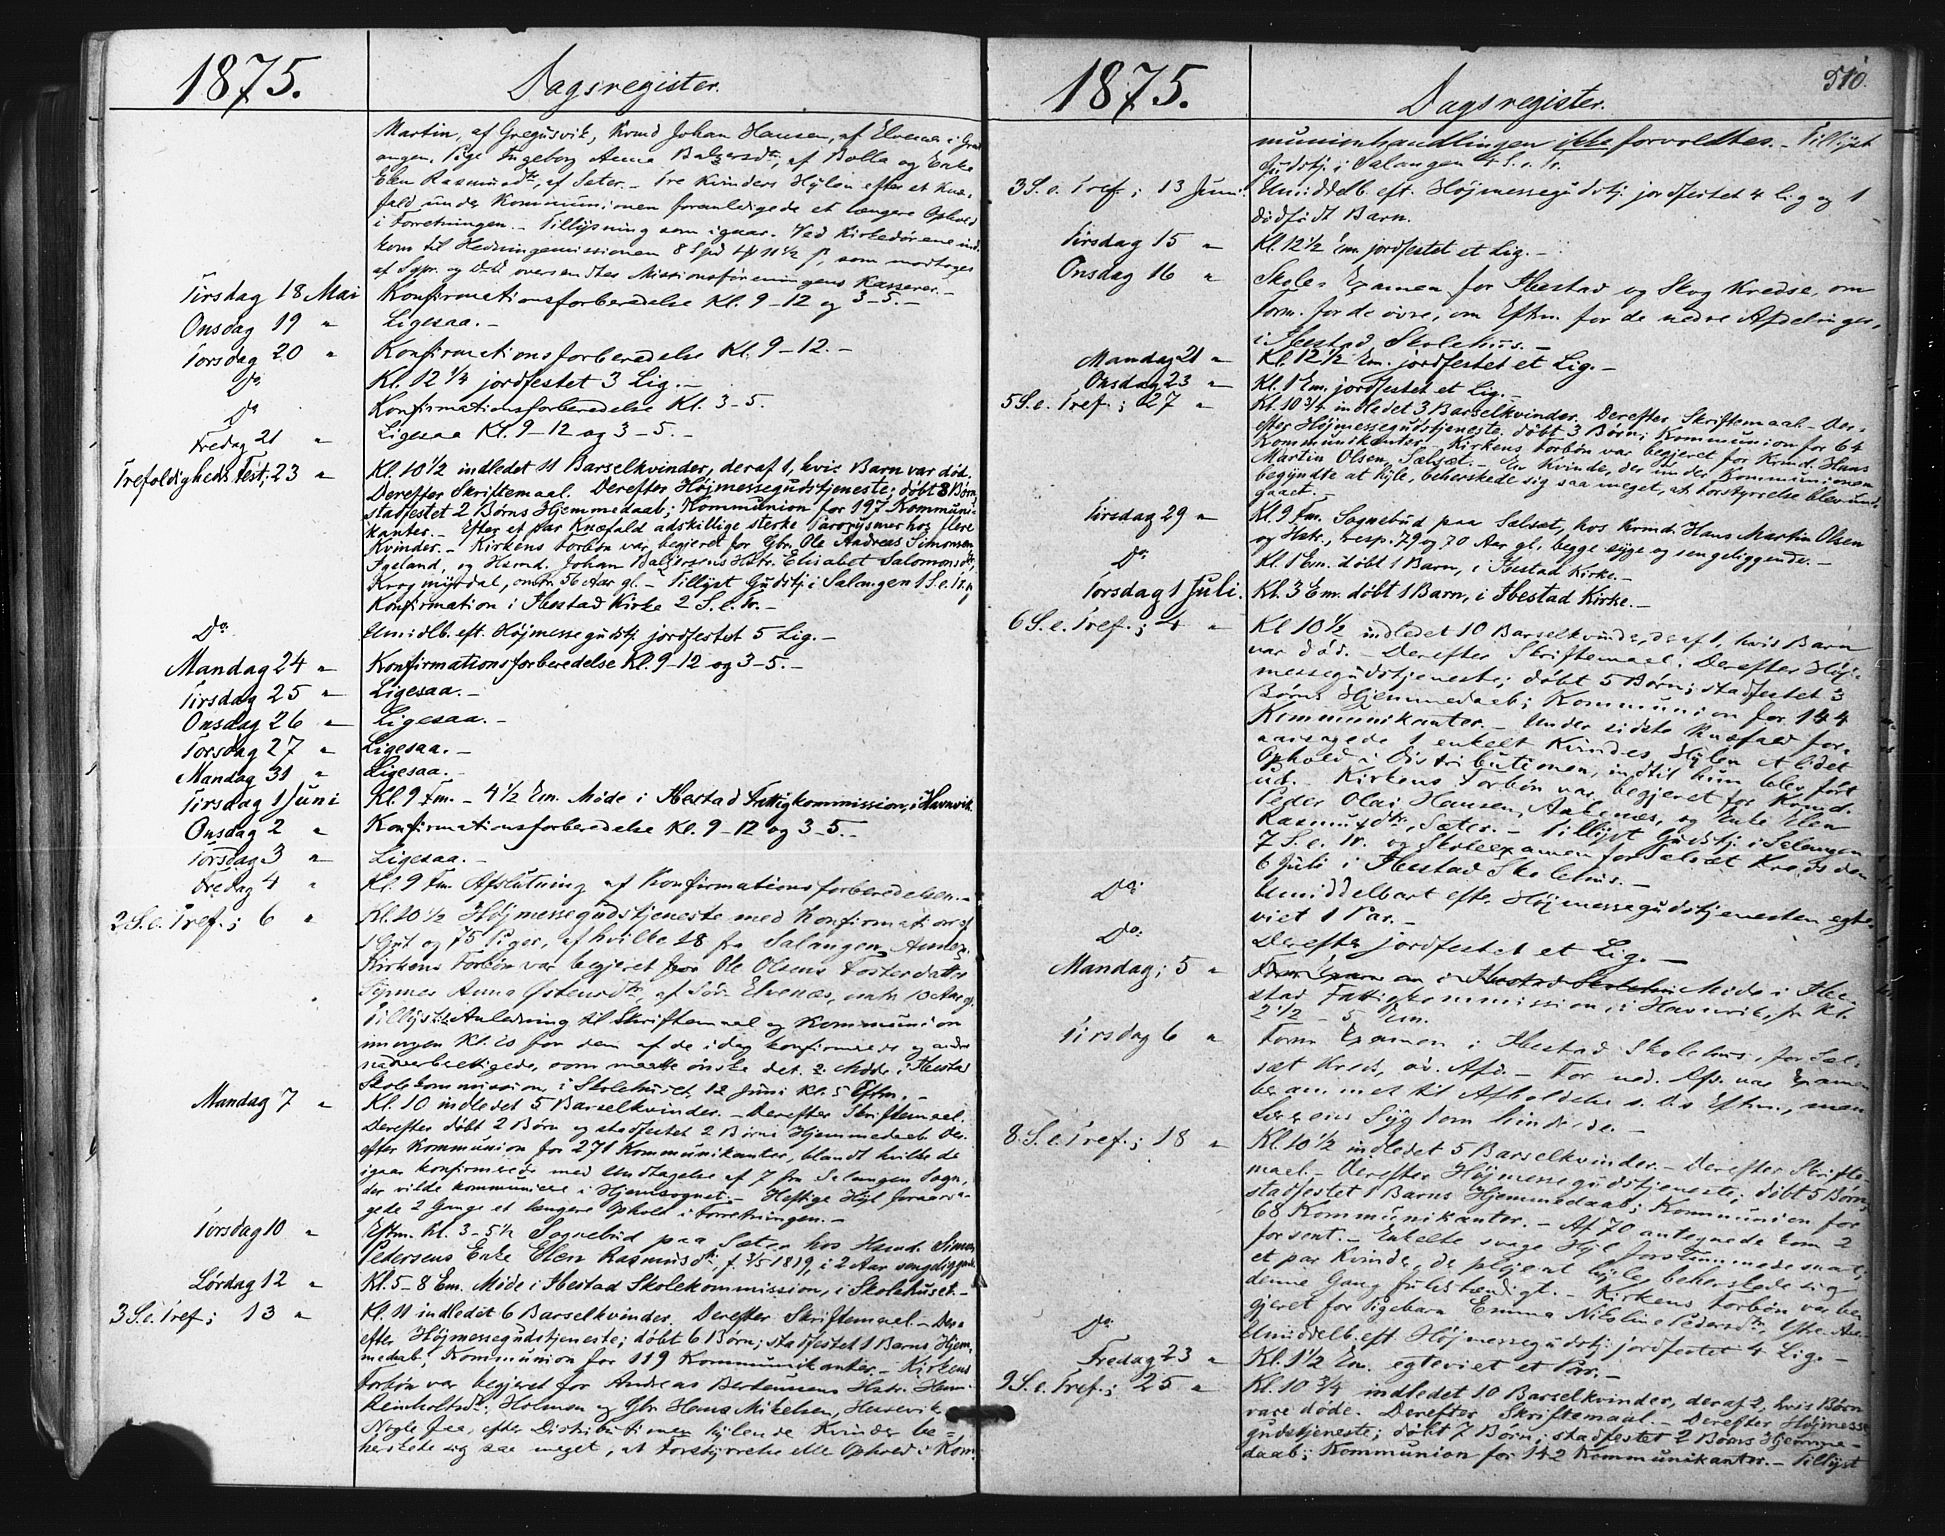 1875.
Dagsregister.
Martin, af Gregusvik, Krmd Johan Hansen, af Elvenes i Grat
angen, Pige Ingeborg Anna Balzersdtr, af Bolla og Enke
Elen Rasmusdtr, af Sæter. – Tre Kvinders Hylen efter et Knæ-
fald under Kommunionen foranledigede et længere Ophold
i Forretningen. – Tillysning som igaar. Ved Kirkedørene ind-
kom til Hedningemissionen 8 Spd 4 11½ s, som modtoges
af Sgpr. og oversendtes Missionsforeningens Kasserer. –
Tirsdag 18 Mai Konfirmationsforberedelse Kl. 9–12 og 3–5. –
Onsdag 19 " Ligesaa. –
Torsdag 20 " Konfirmationsforberedelse Kl. 9–12. –
Do Kl. 12¼ jordfestet 3 Lig. –
Do Konfirmationsforberedelse Kl. 3–5.
Fredag 21 " Ligesaa Kl. 9–12 og 3–5. –
Trefoldigheds Fest; 23 " Kl. 10½ indledet 11 Barselkvinder, deraf 1, hvis Barn var død.
Derefter Skriftemaal. Derefter Højmessegudstjeneste; døbt 8 Børn,
stadfestet 2 Børns Hjemmedaab; Kommunion for 197 Kommuni-
kanter. – Efter et par Knæfald adskillige sterke Paroxysmer hos flere
Kvinder. – Kirkens Forbøn var begjeret for Gbr. Ole Andreas Simonsen
Igeland, og Hsmd. Johan Balzersens Hstr. Elisabet Salomonsdtr,
Krogmyrdal, omtr. 56 Aar gl. – Tillyst Gudstj. i Salangen 1 S. e. Tr. og
Konfirmation i Ibestad Kirke 2 S. e. Tr. –
Do Umidlb. eft. Højmessegudstj. jordfestet 5 Lig. –
Mandag 24 " Konfirmationsforberedelse Kl. 9–12 og 3–5. –
Tirsdag 25 " Ligesaa. –
Onsdag 26 " Ligesaa. –
Torsdag 27 " Ligesaa. –
Mandag 31 " Ligesaa. –
Tirsdag 1 Juni Kl. 9 Fm. – 4½ Em. Møde i Ibestad Fattigkommission, i Havnvik.
Onsdag 2 " Konfirmationsforberedelse Kl. 9–12 og 3–5. –
Torsdag 3 " Ligesaa. –
Fredag 4 " Kl. 9 Fm Afslutning af Konfirmationsforberedelsen. –
2 S. e. Tref.; 6 " Kl. 10½ Højmessegudstjeneste med Konfirmation af
1 Gut og 75 Piger, af hvilke 18 fra Salangen Annex.
Kirkens Forbøn var begjeret for Ole Olsens Fosterdatter
Anna Østensdtr, af Elvenes, omtr 10 Aar gl.
Tillyst Anledning til Skriftemaal og Kommunion
imorgen Kl. 10 for dem af de idag konfirmerede og andre
nadverberettigede, som maatte ønske det. 2. Møde i Ibestad
Skolekommission, i Skolehuset, 12 Juni Kl. 5 Eftm. –
Mandag 7 " Kl. 10 indledet 5 Barselkvinder. – Derefter Skriftemaal.
Derefter døbt 2 Børn og stadfestet 2 Børns Hjemmedaab. Der-
efter Kommunion for 271 Kommunikanter, blandt hvilke de
igaar konfirmerede med Undtagelse af 7 fra Salangen Sogn,
der vilde kommunicere i Hjemsognet. – Heftige Hyl foraarsa-
gede 2 Gange et længere Ophold i Forretningen. –
Torsdag 10 " Eftm. Kl. 3–5½ Sognebud paa Sæter hos Hsmd. Simon
Pedersens Enke Elen Rasmusdtr, f. 1819, i 2 Aar sengeliggende.
Lørdag 12 " Kl. 5–8 Em. Møde i Ibestad Skolekommission, i Skolehuset. –
3 S. e. Tref.; 13 " Kl. 11 indledet 6 Barselkvinder. Derefter Skriftemaal. – Der-
efter Højmessegudstjeneste; døbt 6 Børn; stadfestet 1 Barns Hjem-
medaab; Kommunion for 119 Kommunikanter. – Kirkens
Forbøn var begjeret for Andreas Berteusens Hstr.
Reinholtsdtr, Holmen og Gbr Hans Mikelsen,
Nogle faa, efter Distributionen hylende Kvinder be-
herskede sig saa meget, at Forstyrrelse eller Ophold i Kom-
1875.
Dagsregister.
510.
munionhandlingen ikke forvoldtes. – Tillyst
Gudstj. i Salangen 4 S. e. Tr.
3 S. e. Tref.; 13 Juni. Umiddelb. eft. Højmessegudstj. jordfestet 4 Lig og 1
dødfødt Barn.
Tirsdag 15 " Kl. 12½ Em. jordfestet et Lig. –
Onsdag 16 " Skole-Examen for Ibestad og Skog Kredse, om
Form. for de øvre, om Eftm. for de nedre Afdelinger,
i Ibestad Skolehus. –
Mandag 21 " Kl. 12½ Em. jordfestet et Lig. –
Onsdag 23 " Kl. 1 Em. jordfestet et Lig. –
5 S. e. Tref.; 27 " Kl. 10¾ indledet 3 Barselkvinder. Derefter Skriftemaal. – Der-
efter Højmessegudstjeneste, døbt 3 Børn; Kommunion for 64
Kommunikanter. Kirkens Forbøn var begjeret for Krmd. Hans
Martin Olsen, Sælsæt. – En Kvinde, der under Kommunionen
begyndte at hyle, beherskede sig saa meget, at Forstyrrelse blev und-
gaaet. –
Tirsdag 29 " Kl. 9 Fm. Sognebud paa Sælsæt, hos Krmd. Hans Martin Olsen
og Hstr., resp. 79 og 70 Aar gl., begge syge og sengeliggende. –
Do Kl. 1 Em. døbt 1 Barn, i Ibestad Kirke. –
Torsdag 1 Juli. Kl. 3 Em. døbt 1 Barn, i Ibestad Kirke. –
6 S. e. Tref.; 4 " Kl 10½ indledet 10 Barselkvinder, deraf 1, hvis Barn
var død. – Derefter Skriftemaal. Derefter Høj-
messegudstjeneste; døbt 5 Børn; stadfestet 3
Børns Hjemmedaab; Kommunion for 144
Kommunikanter. – Under sidste Knæfald for-
aarsagede 1 enkelt Kvindes Hylen et lidet
Ophold i Distributionen, indtil hun blev ført
ud. – Kirkens Forbøn var begjeret for Krmd.
Peder Olai Hansen, Aalenæs, og Enke Elen
Rasmusdtr, Sæter. – Tillyst Gudstj. i Salangen
7 S. e. Tr. og Skoleexamen for Sælsæt Kreds den
6 Juli i Ibestad Skolehus. –
Do Umiddelbart efter Højmessegudstjenesten egte-
viet 1 Par. –
Do Derefter jordfestet et Lig. –
Mandag; 5 " i Ibestad Skolehus Møde i Ibe-
stad Fattigkommission, i Havnvik, fr. Kl.
2½ – 5 Em.
Tirsdag 6 " Form. Examen i Ibestad Skolehus, for Sæl-
sæt Kreds, øv. Afd. – For ned. Afd. var Examen
berammet til Afholdelse s. D.s Eftm., men
Lærerens Sygdom hindrede. –
8. S. e. Tref.; 18 " Kl. 10½ indledet 5 Barselkvinder. – Derefter Skrifte-
maal. – Derefter Højmessegudstjeneste; døbt 5 Børn;
stadfestet 1 Barns Hjemmedaab; Kommunion for
68 Kommunikanter. – Af 70 antegnede kom 2
for sent. – Enkelte svage Hyl forstummede snart;
et par Kvinder, de pleje at hyle, beherskede sig
denne Gang fuldstændigt. – Kirkens Forbøn var be-
gjeret for Pigebarn Emma Nilsline Pedersdtr,
Do Umiddelb. eft. Højmessegudstj. jordfestet 4 Lig. –
Fredag 23 " Kl. 1½ Em. egteviet et Par. –
9 S. e. Tref.; 25 " Kl. 10¾ indledet 10 Barselkvinder, deraf 2, hvis Børn
vare døde. Derefter Skriftemaal. – Derefter Højmesse-
gudstjeneste; døbt 7 Børn; stadfestet 2 Børns Hjemme-
daab; Kommunion for 142 Kommunikanter. – Tillyst